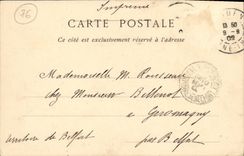 76
Imprimé
CARTE POSTALE
Ce côté est exclusivement réservé à l'adresse
Mademoiselle M. Rousseau
chez Monsieur Bellenot
à Giromagny
territoire de Belfort par Belfort